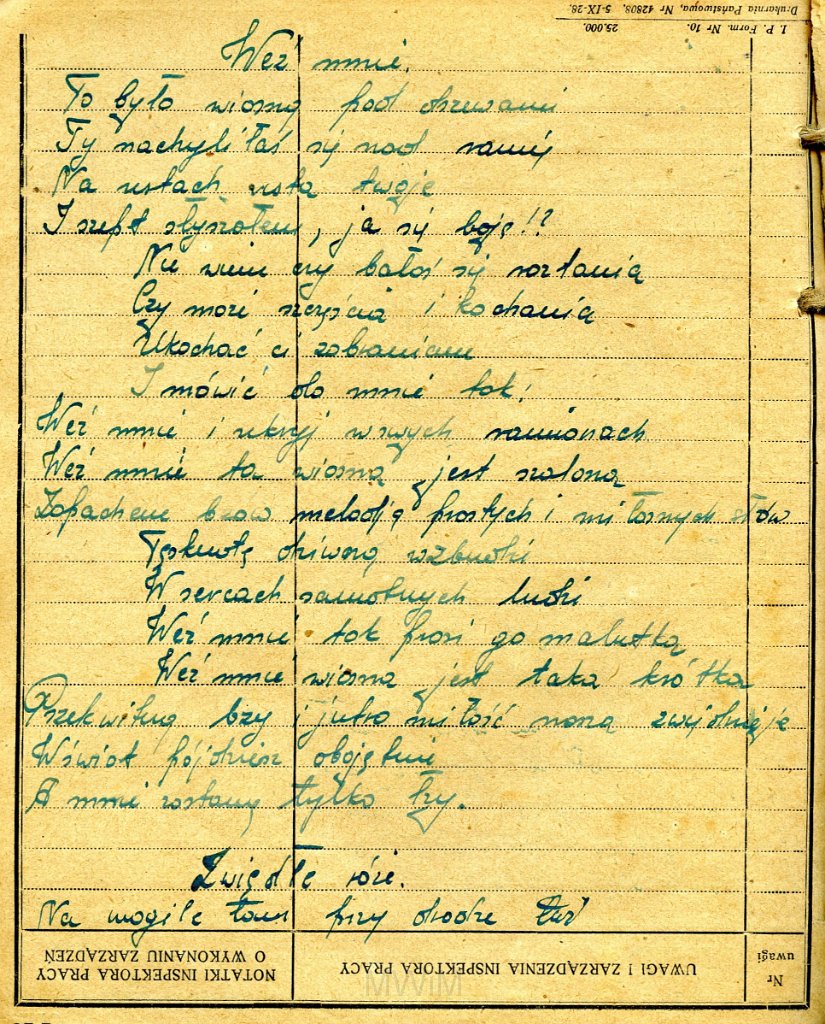 I. P. Form. Nr 10. 25.000.
Drukarnia Państwowa, Nr 42808. 5-IX-28.
Weź mnie.
To było wiosną pod drzewami
Ty nachyliłaś się nad nami
Na ustach usta twoje
I szept słyszałem, ja się boję!?
Nie wiem czy bałaś się rozstania
Czy może szczęścia i kochania
Ukochać ci zabraniam
I mówić do mnie tak:
Weź mnie i ukryj w swych ramionach
Weź mnie ta wiosna jest szalona
Zapachem bzów melodją prostych i miłosnych słów
Tęsknotę dziwną wzbudzi
W sercach samotnych ludzi
Weź mnie tak prosi go malutka
Weź mnie wiosna jest taka krótka
Przekwitną bzy i jutro miłość nasza zwiędnieje
W świat pójdziesz obojętnie
A mnie zostaną tylko łzy.
Zwiędłe róże.
Na mogile tam przy drodze tuż
NOTATKI INSPEKTORA PRACY O WYKONANIU ZARZĄDZEŃ
UWAGI I ZARZĄDZENIA INSPEKTORA PRACY
Nr uwagi
MWiM